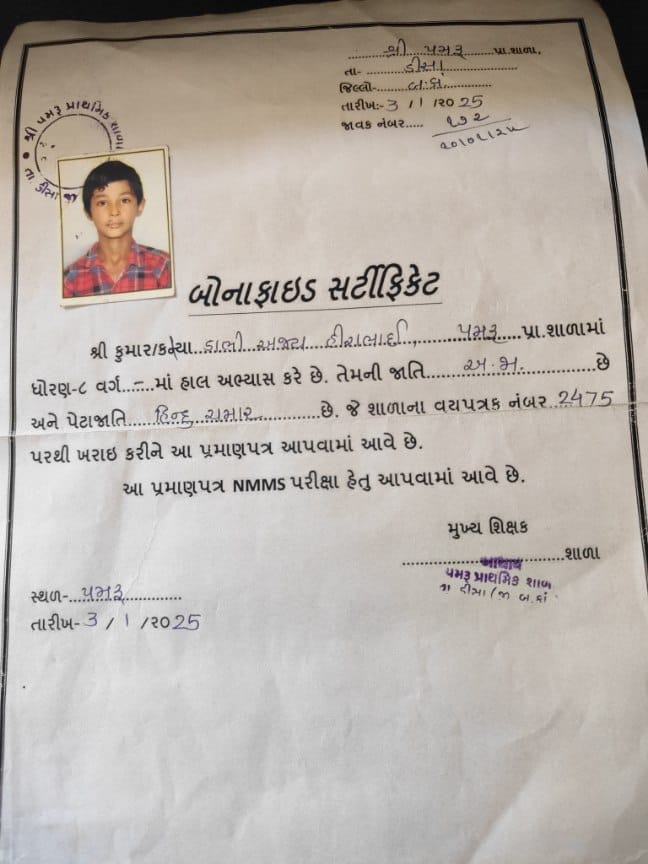 શ્રી પમરૂ પ્રા.શાળા,
તા- ડીસા
જિલ્લો- બ.કાં
તારીખ:- 3 / 1 /૨૦25
જાવક નંબર..... ૧૭૨
૨૦/૦૧/૨૫
શ્રી પમરૂ પ્રાથમિક શાળા
તા. ડીસા
બોનાફાઇડ સર્ટીફિકેટ
શ્રી કુમાર/કન્યા... ડાભી અજય હીરાભાઈ, પમરૂ.....પ્રા.શાળામાં
ધોરણ-૮ વર્ગ..-..માં હાલ અભ્યાસ કરે છે. તેમની જાતિ.....અ.જા.....છે
અને પેટાજાતિ.....હિન્દુ ચમાર.....છે. જે શાળાના વયપત્રક નંબર ..2475
પરથી ખરાઇ કરીને આ પ્રમાણપત્ર આપવામાં આવે છે.
આ પ્રમાણપત્ર NMMS પરીક્ષા હેતુ આપવામાં આવે છે.
મુખ્ય શિક્ષક
શાળા
આચાર્ય
પમરૂ પ્રાથમિક શાળા
તા ડીસા (જી બ.કાં
સ્થળ-...પમરૂ............
તારીખ- 3 / 1 /૨૦25